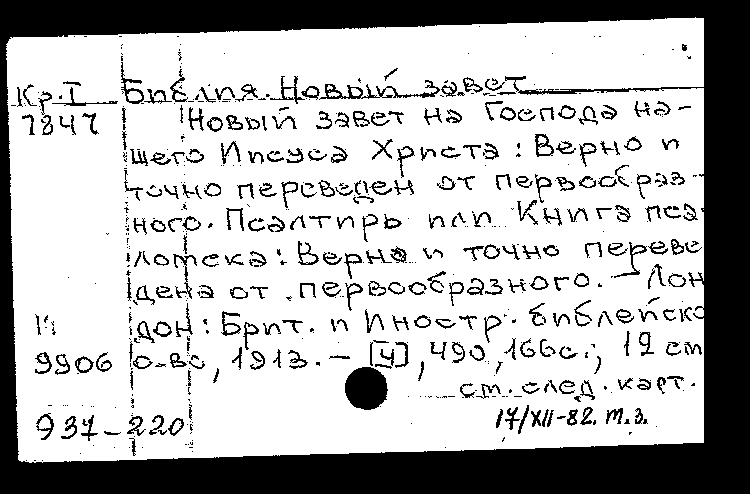 Кр.I Библия. Новый завет
7847 Новый завет на Господа на-
шего Иисуса Христа: Верно и
точно переведен от первообраз-
ного. Псалтирь или Книга пса
ломска: Верно и точно переве
дена от первообразного. — Лон
дон: Брит. и Иностр. библейско
9906 о-во, 1913. — [4], 490, 166с.; 12 см
см. след. карт.
937-220 17/XII-82. т.з.